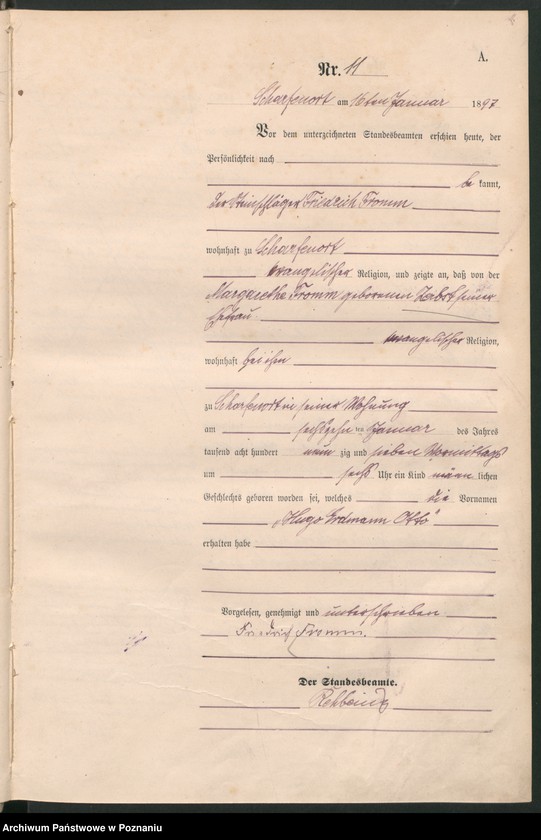 A.
Nr. 11
Scharfenort am 16ten Januar 1897
Vor dem unterzeichneten Standesbeamten erschien heute, der
Persönlichkeit nach
be kannt,
der Steinschläger Friedrich Fromm
wohnhaft zu Scharfenort
evangelischer Religion, und zeigte an, daß von der
Margarethe Fromm geborenen Zabot seiner
Ehefrau
evangelischer Religion,
wohnhaft bei ihm
zu Scharfenort in seiner Wohnung
am sechszehn ten Januar des Jahres
tausend acht hundert neun zig und sieben Vormittags
um sechs Uhr ein Kind männ lichen
Geschlechts geboren worden sei, welches die Vornamen
„Hugo Erdmann Otto"
erhalten habe
Vorgelesen, genehmigt und unterschrieben
Friedrich Fromm.
Der Standesbeamte.
Rehbein
Archiwum Państwowe w Poznaniu